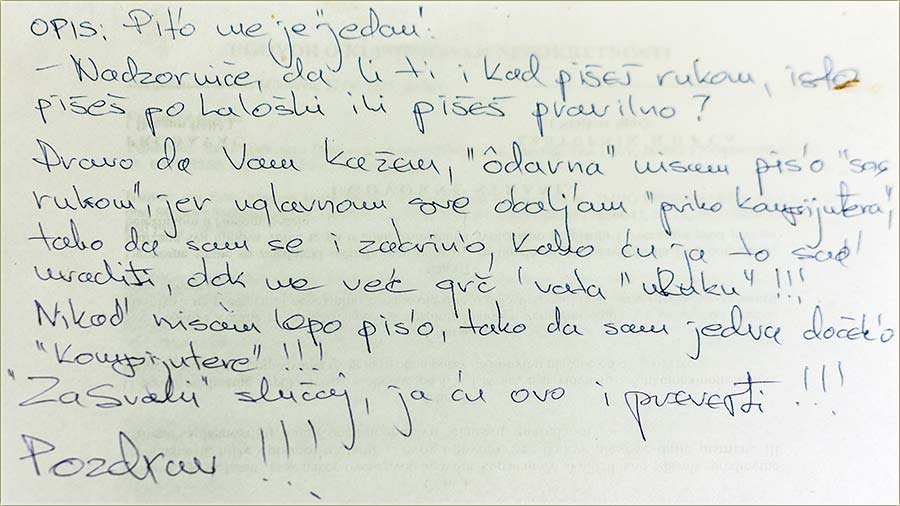 OPIS: Pit'o me je "jedan":
- Nadzorniče, da li ti i kad pišeš rukom, isto
pišeš po laloški ili pišeš pravilno?
Pravo da Vam kažem, "ôdavna" nisam pis'o "sas
rukom", jer uglavnom sve obaljam "priko kompijutera",
tako da sam se i zabrino, kako ću ja to sad'
uraditi, dok me već grč 'vata "uruku" !!!
Nikad' nisam lepo pis'o, tako da sam jedva doček'o
"Kompijutere" !!!
"Zasvaku" slučaj, ja ću ovo i prevesti !!!
Pozdrav !!!